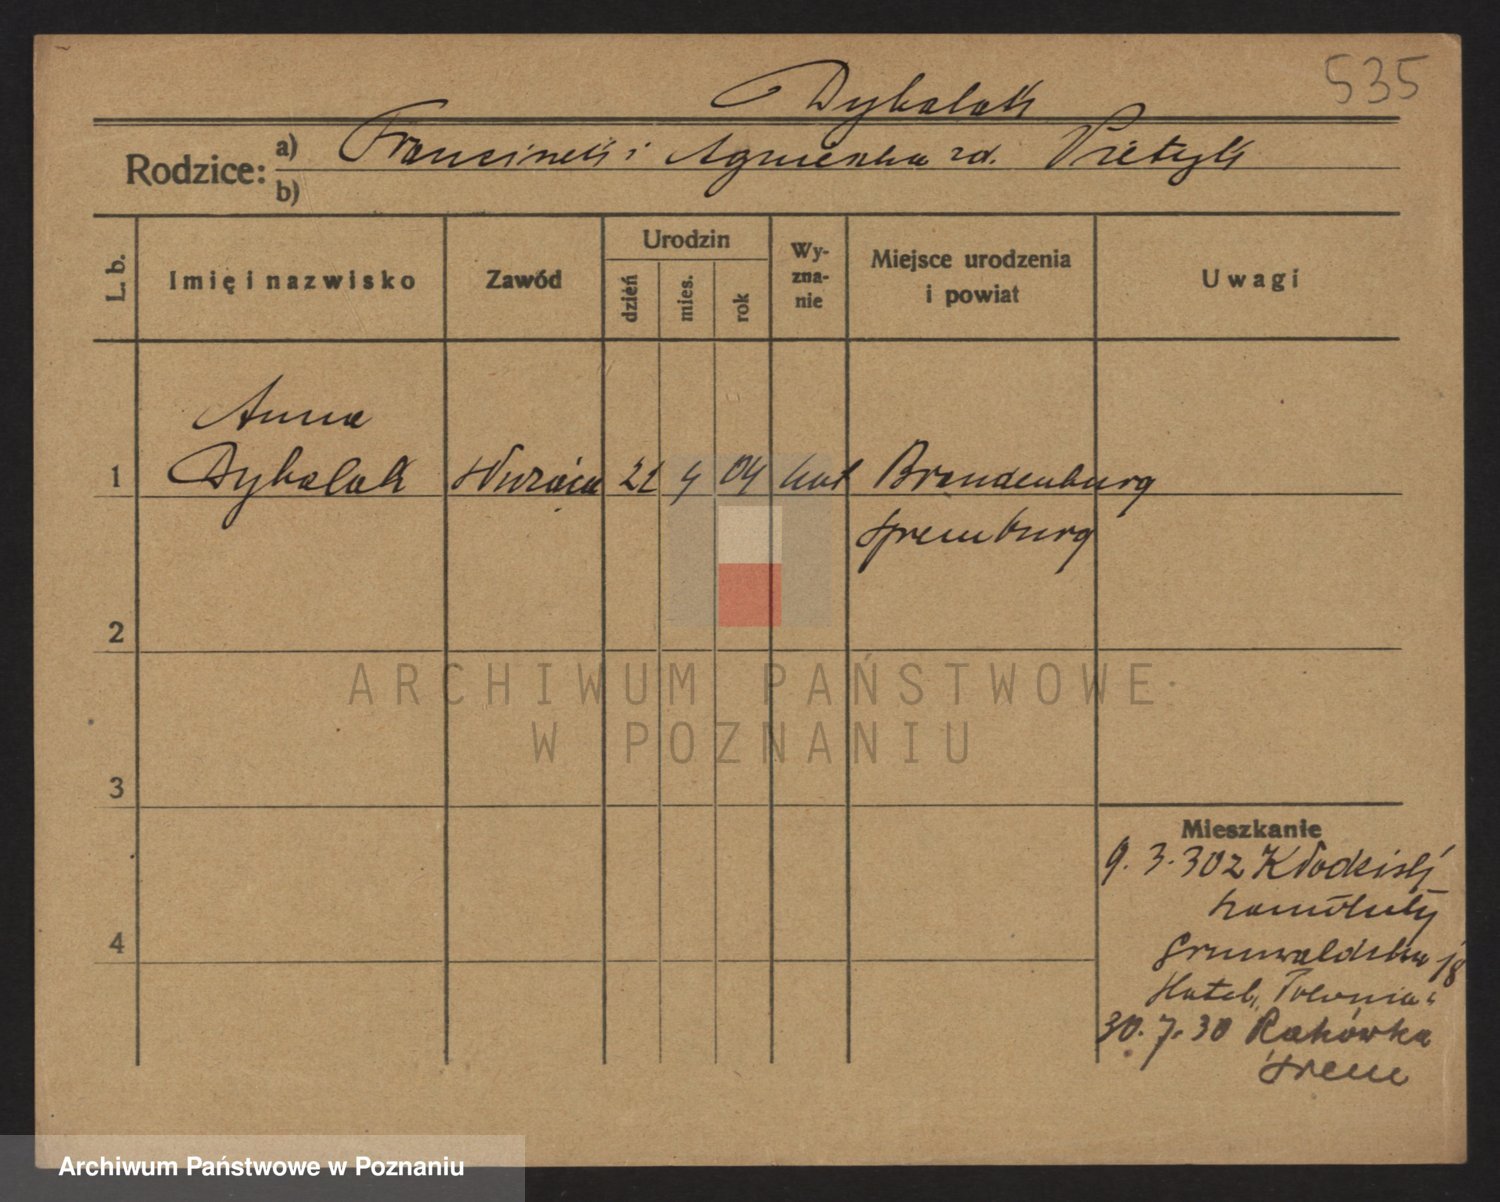 535
Dybalak
Rodzice: a) Franciszek i Agnieszka zd. Pietyk
b)
L. b.
Imię i nazwisko
Zawód
Urodzin
dzień
mies.
rok
Wy-
zna-
nie
Miejsce urodzenia
i powiat
Uwagi
Anna
1 Dybalak służąca 21 4 04 kat Brandenburg
Spremburg
2
3
4
Mieszkanie
9. 3. 30 z
Grunwaldzka 18
Hotel „Polonia“
30. 7. 30 Rakówka
Śrem
ARCHIWUM PAŃSTWOWE
W POZNANIU
Archiwum Państwowe w Poznaniu